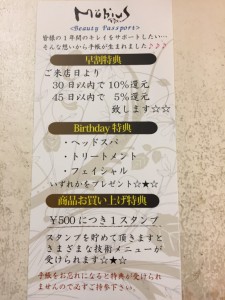 Mobius
<Beauty Passport>
皆様の１年間のキレイをサポートしたい…
そんな想いから手帳が生まれました♪♪♪
早割特典
ご来店日より
30日以内で10%還元
45日以内で 5%還元
致します☆☆
Birthday特典
・ヘッドスパ
・トリートメント
・フェイシャル
いずれかをプレゼント☆★☆
商品お買い上げ特典
¥500につき1スタンプ
スタンプを貯めて頂きますと
さまざまな技術メニューが
受けられます☆★☆
手帳をお忘れになると特典が受けられ
ませんので必ずご持参下さい。